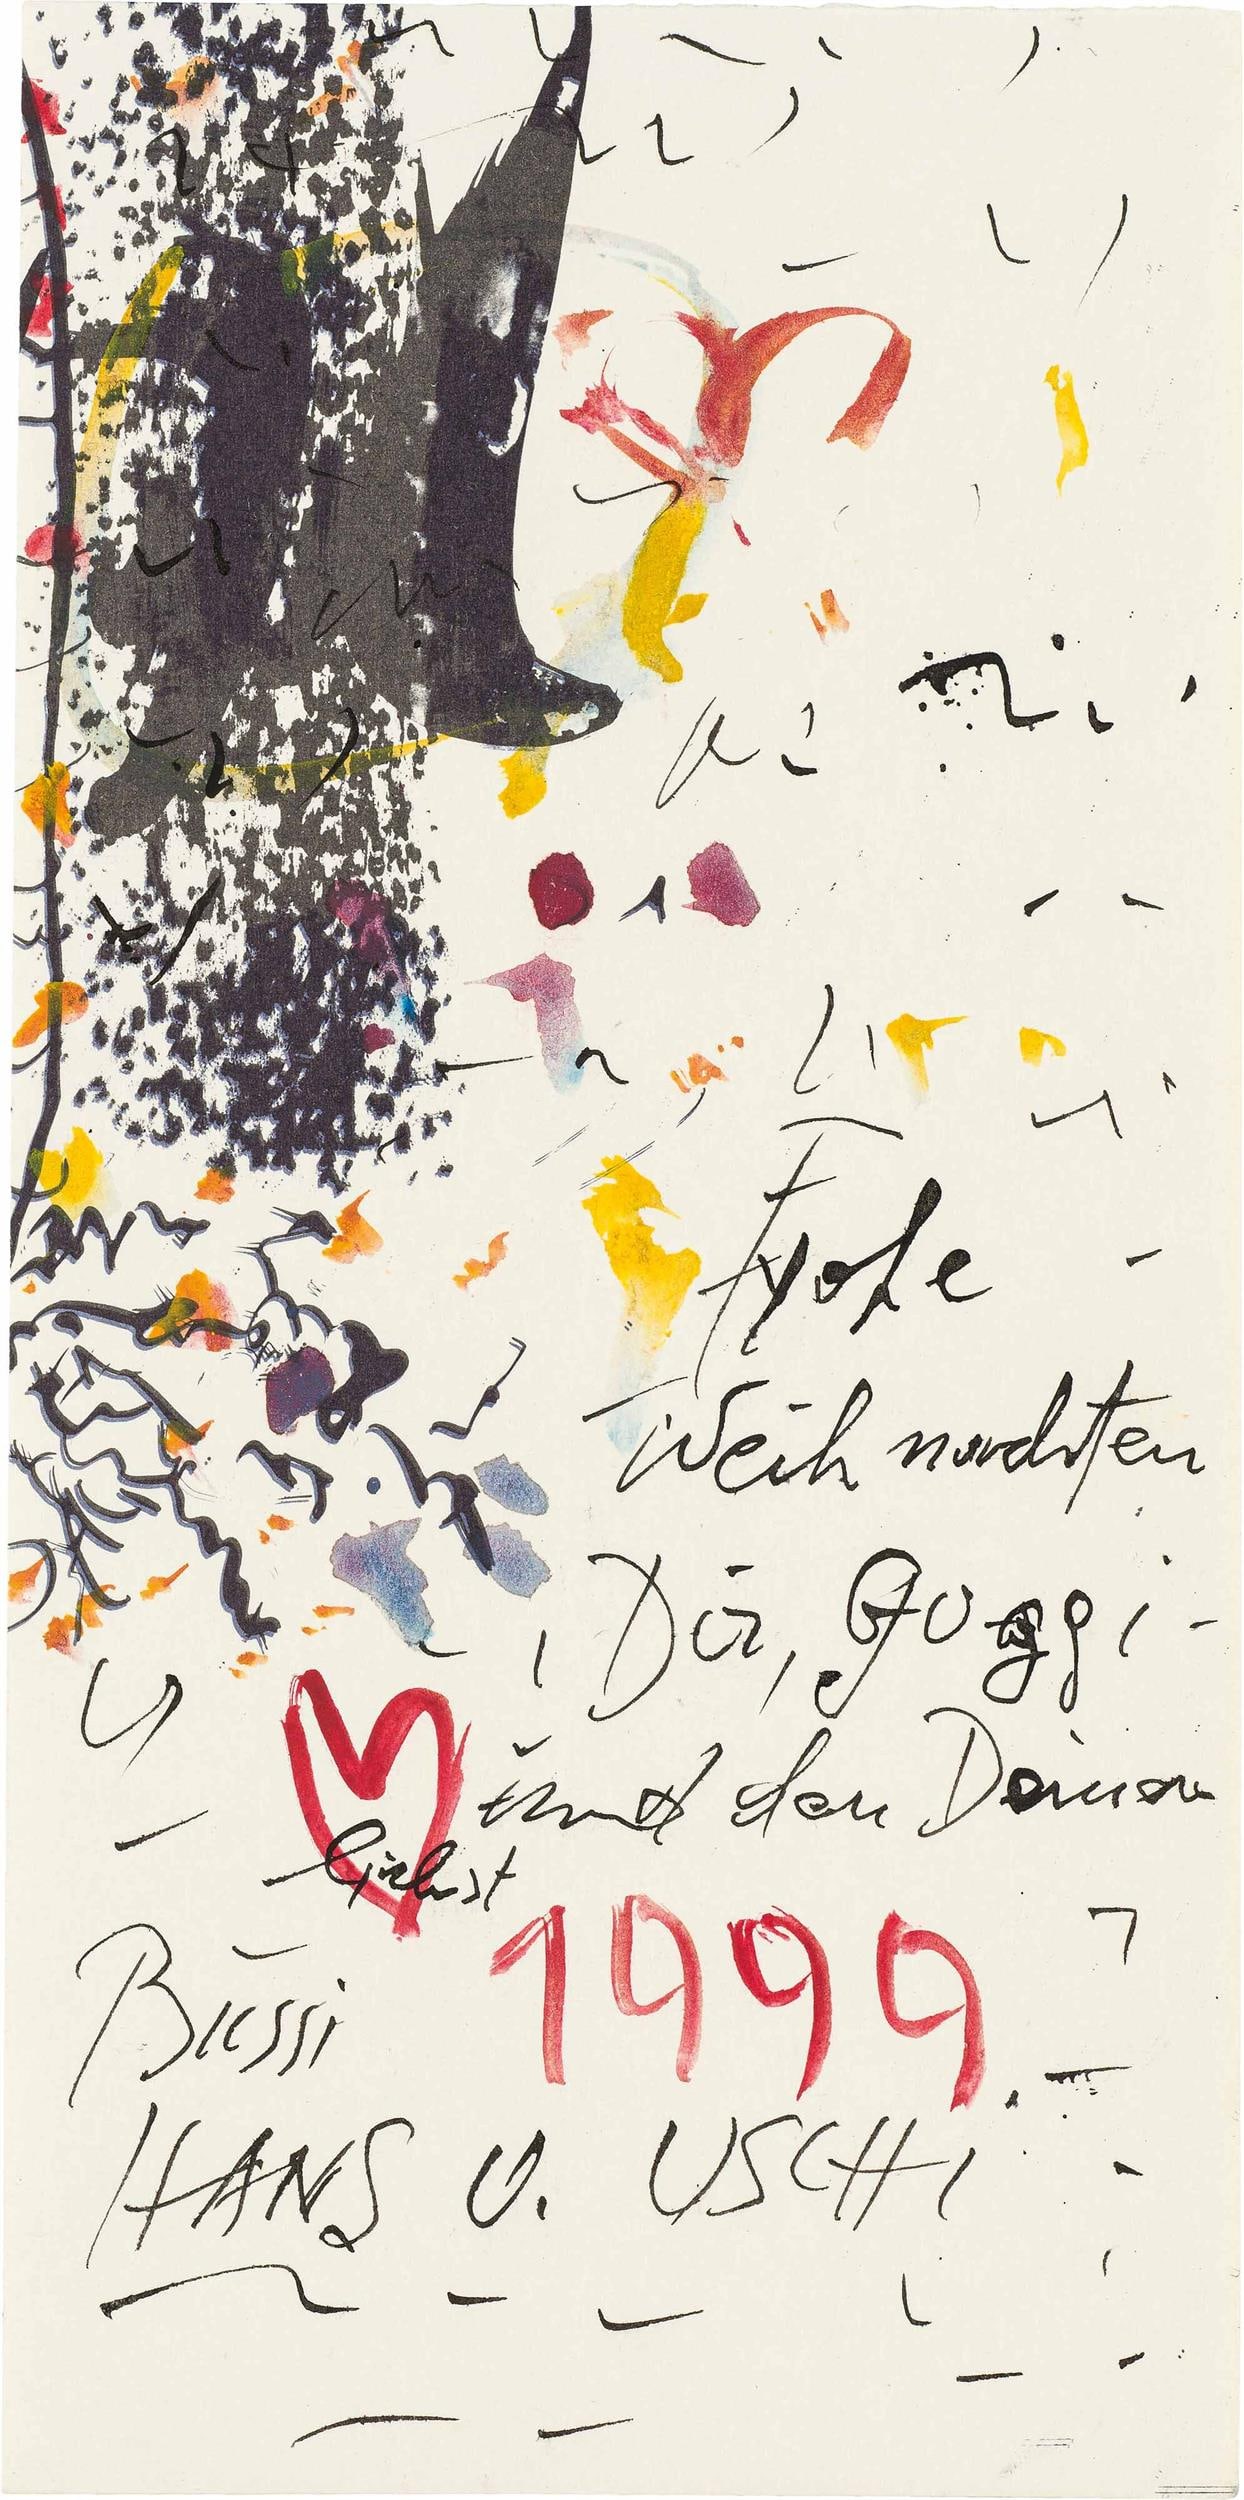 Frohe
Weihnachten
Dir, Guggi-
und den Deinen
liebst
1999.
Bussi
HANS U. USCHI